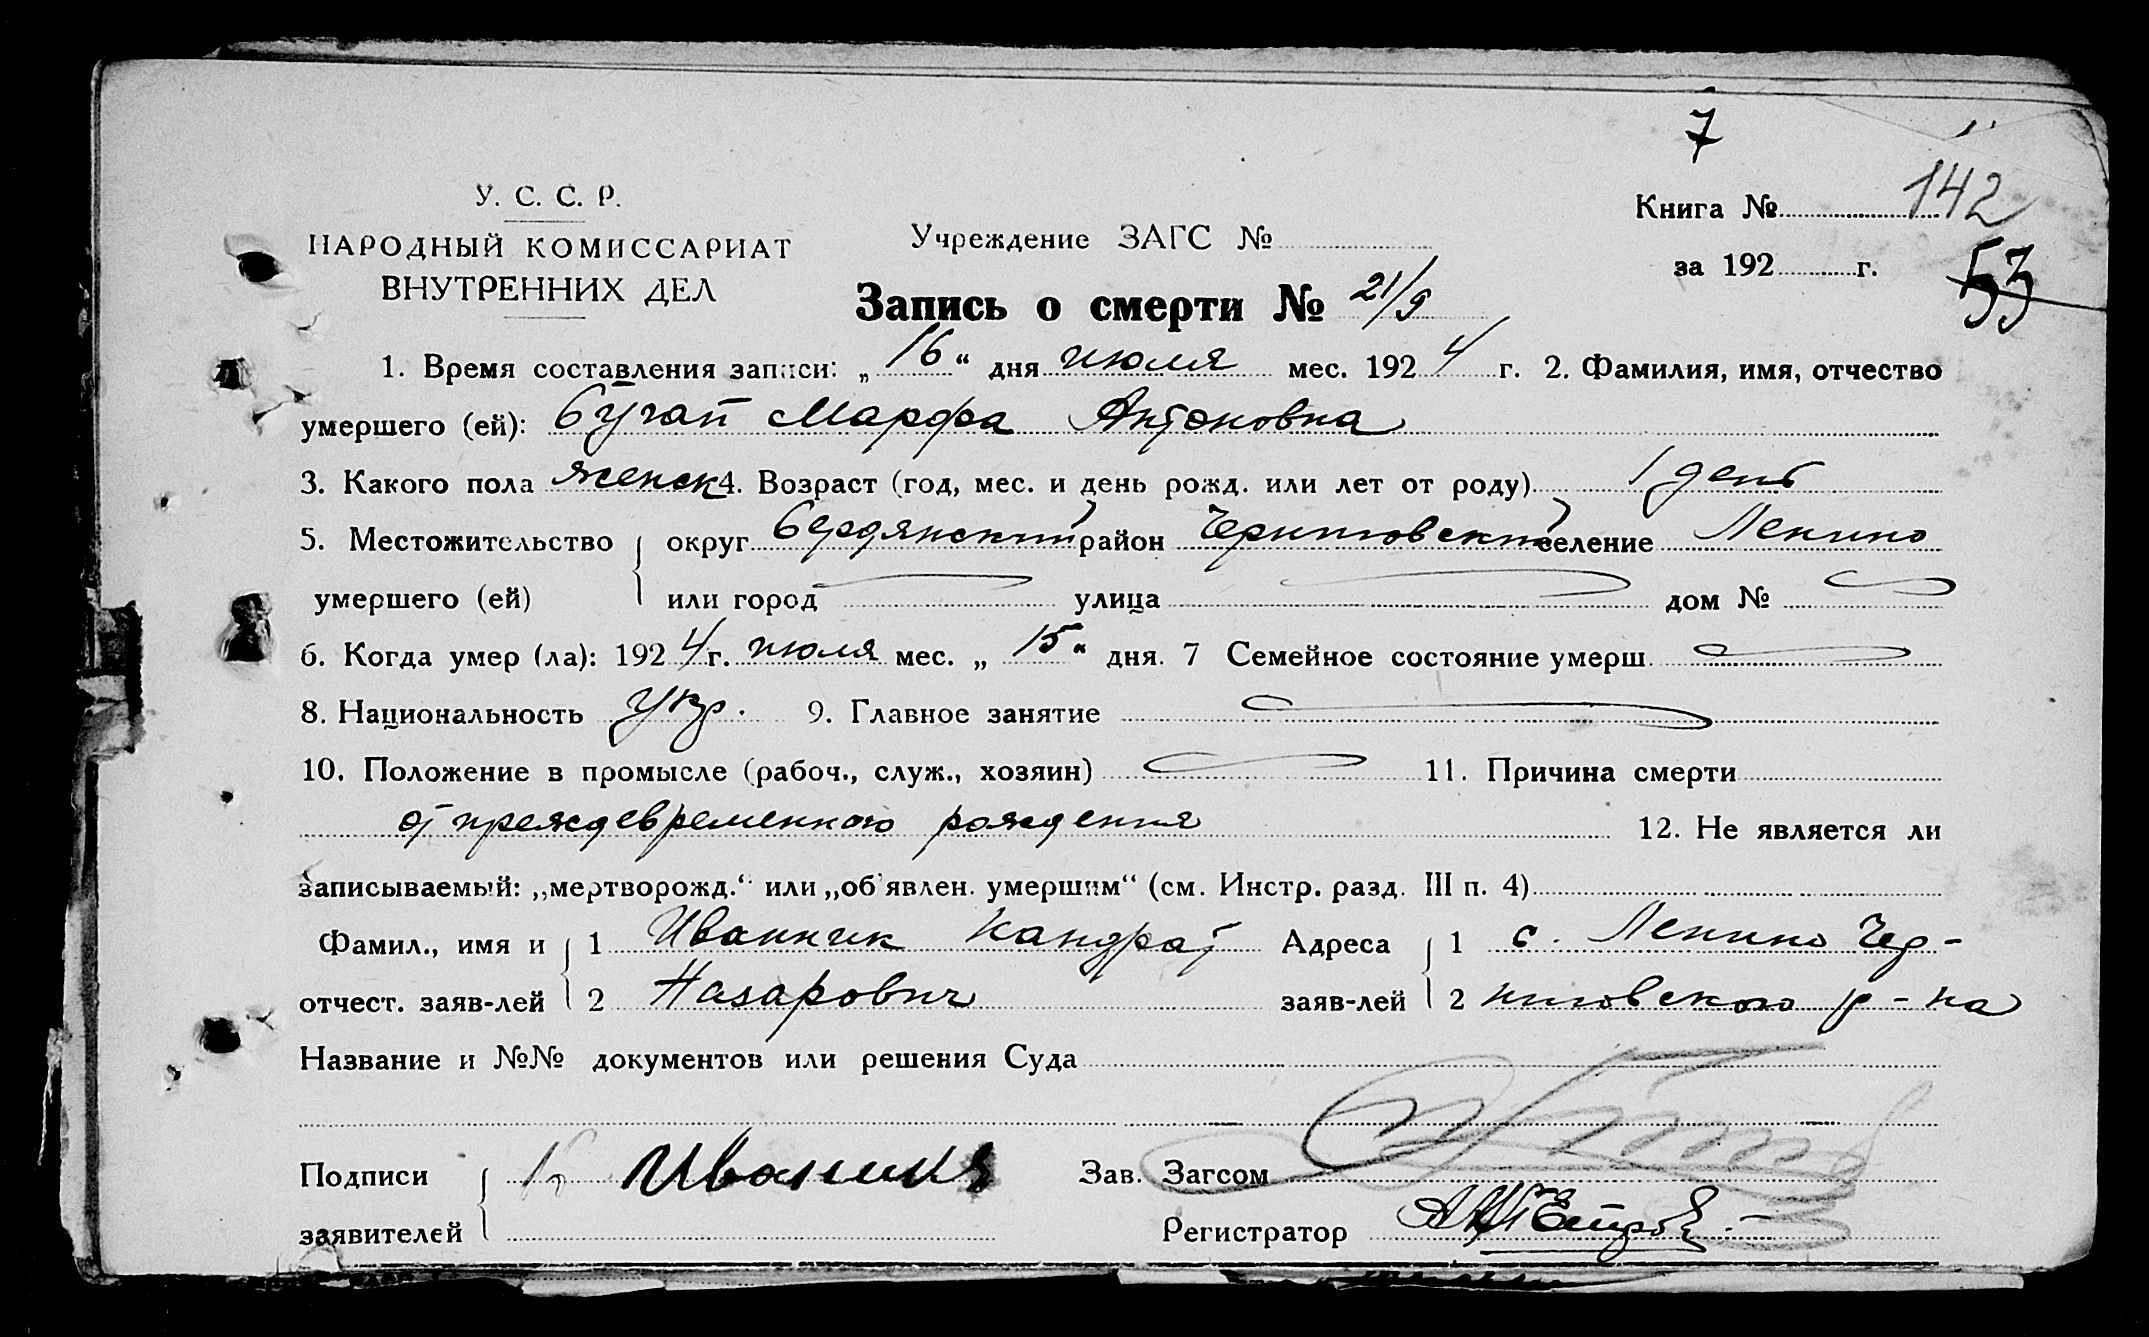 7
У. С. С. Р.
НАРОДНЫЙ КОМИССАРИАТ
ВНУТРЕННИХ ДЕЛ
Учреждение ЗАГС №
Книга № 142
за 192 г. 53
Запись о смерти № 21/9
1. Время составления записи: „16“ дня июля мес. 1924 г. 2. Фамилия, имя, отчество
умершего (ей): Бугай Марфа Антоновна
3. Какого пола женск 4. Возраст (год, мес. и день рожд. или лет от роду) 1 день
5. Местожительство округ Бердянский район Черниговский селение Ленино
умершего (ей) или город улица дом №
6. Когда умер (ла): 1924 г. июля мес. „15“ дня. 7 Семейное состояние умерш.
8. Национальность укр. 9. Главное занятие
10. Положение в промысле (рабоч., служ., хозяин) 11. Причина смерти
от преждевременного рождения 12. Не является ли
записываемый: „мертворожд.“ или „об'явлен. умершим“ (см. Инстр. разд. III п. 4)
Фамил., имя и 1 Иванник Кандрат Адреса 1 с. Ленино Чер-
отчест. заяв-лей 2 Назарович заяв-лей 2 ниговского р-на
Название и №№ документов или решения Суда
Подписи К Зав. Загсом
заявителей Регистратор